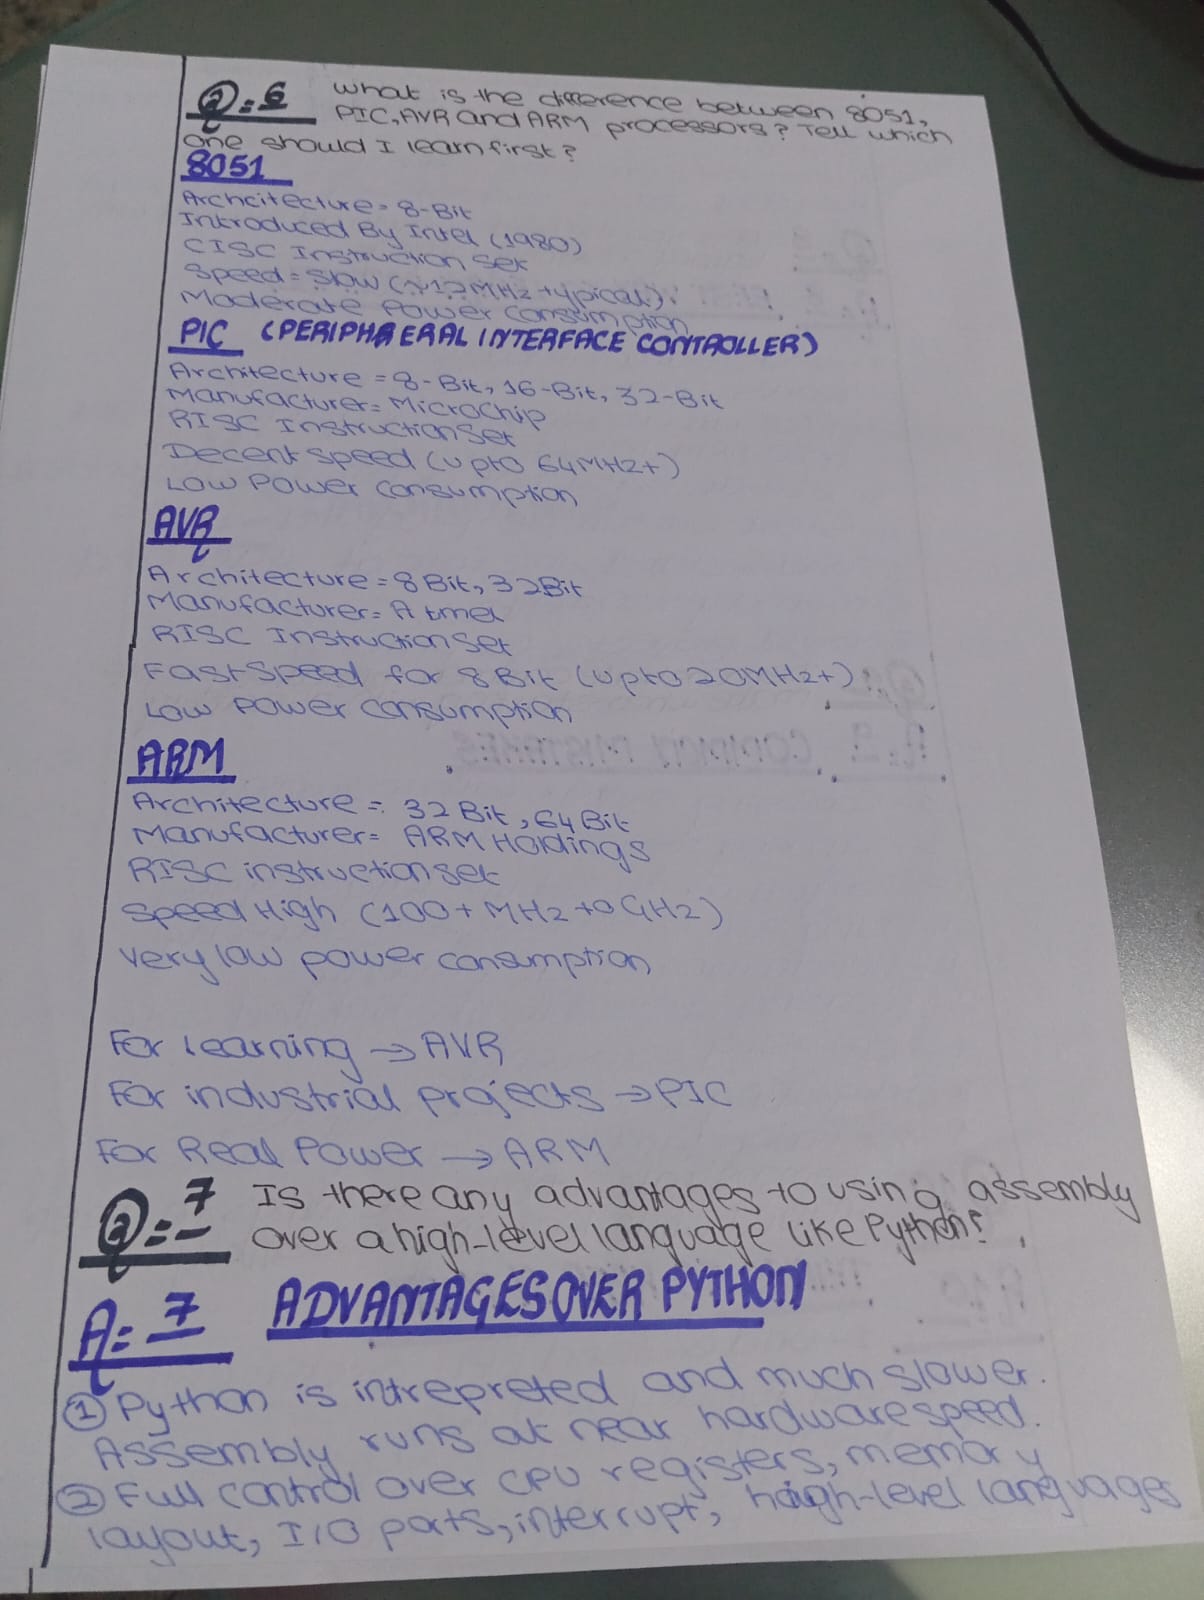 Q=6 What is the difference between 8051,
PIC, AVR and ARM processors? Tell which
one should I learn first?
8051
Archcitecture= 8-Bit
Introduced By Intel (1980)
CISC Instruction Set
Speed= Slow (~12MHz typical).
Moderate Power Consumption
PIC (PERIPHAERAL INTERFACE CONTROLLER)
Architecture = 8-Bit, 16-Bit, 32-Bit
Manufacturer= Microchip
RISC Instruction Set
Decent Speed (upto 64MHz+)
Low Power Consumption
AVR
Architecture = 8 Bit, 32Bit
Manufacturer= Atmel
RISC Instruction Set
Fast Speed for 8 Bit (upto 20MHz+)
Low Power Consumption
ARM
Architecture = 32 Bit, 64 Bit
Manufacturer= ARM Holdings
RISC instruction set
Speed High (100+ MHz to GHz)
Very low power consumption
For Learning → AVR
For industrial projects → PIC
For Real Power → ARM
Q=7 Is there any advantages to using assembly
over a high-level language like Python?
A=7 ADVANTAGES OVER PYTHON
① Python is intrepreted and much slower.
Assembly runs at near hardware speed.
② Full control over CPU registers, memory
layout, I/O ports, interrupt, high-level languages